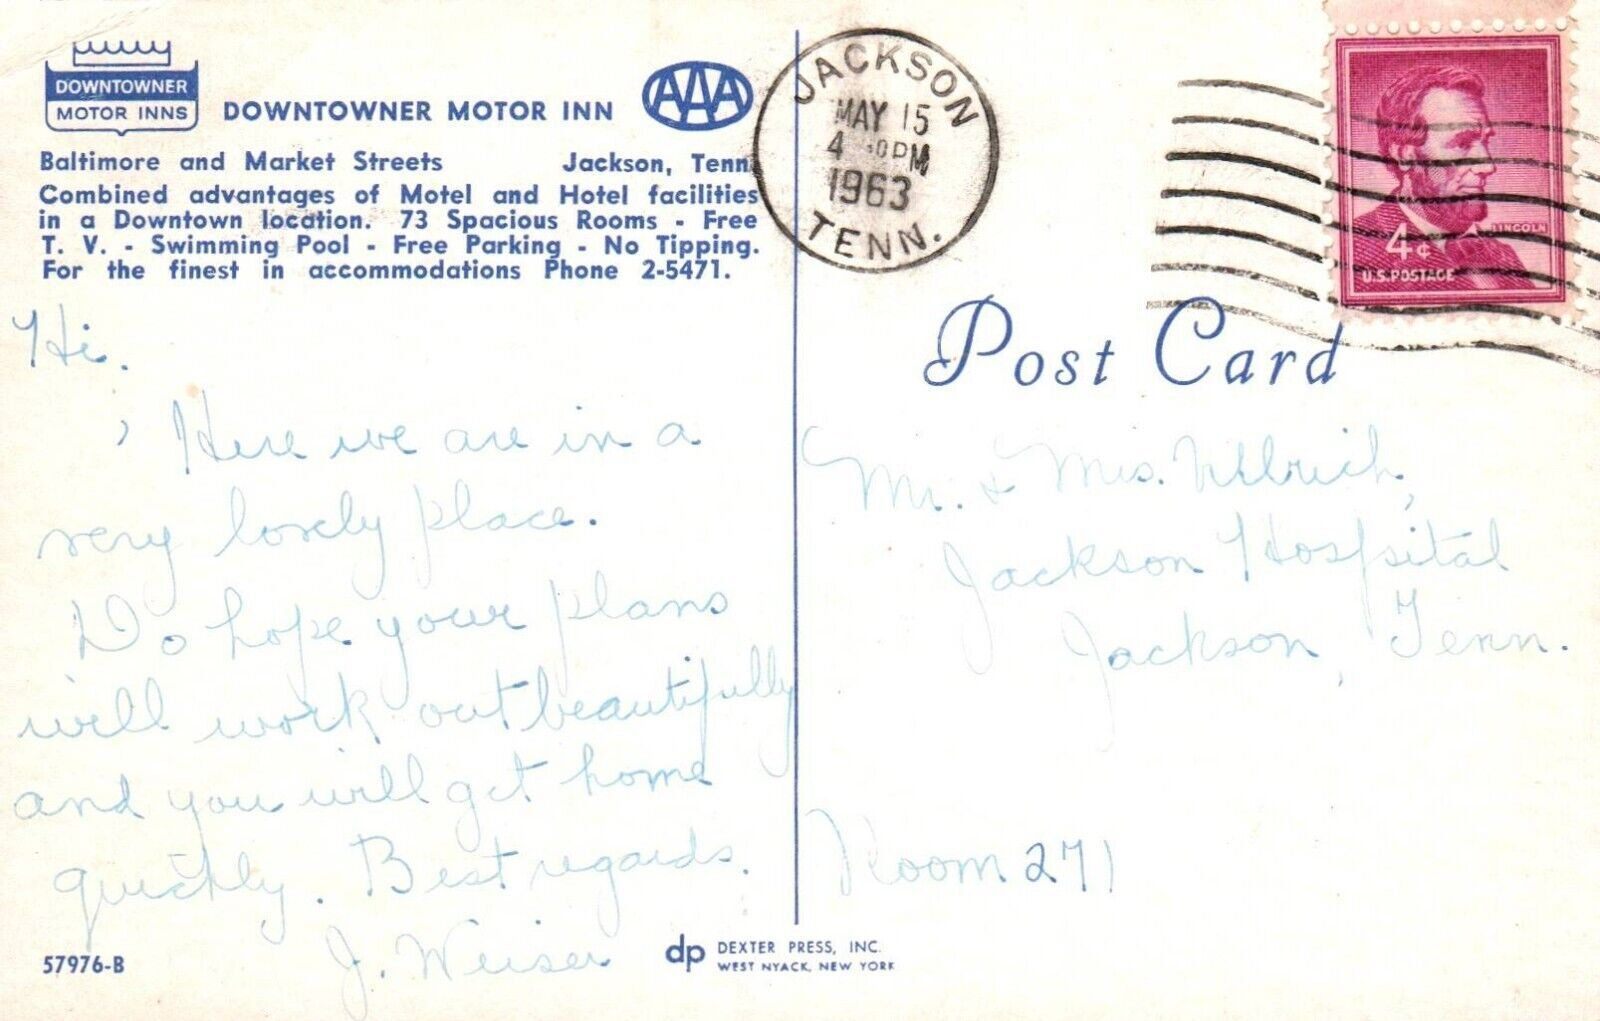 DOWNTOWNER
MOTOR INNS
DOWNTOWNER MOTOR INN
AAA
Baltimore and Market Streets Jackson, Tenn.
Combined advantages of Motel and Hotel facilities
in a Downtown location. 73 Spacious Rooms - Free
T. V. - Swimming Pool - Free Parking - No Tipping.
For the finest in accommodations Phone 2-5471.
Hi.
Here we are in a
very lovely place.
Do hope your plans
will work out beautifully
and you will get home
quickly. Best regards.
J. Weiser
57976-B
dp DEXTER PRESS, INC.
WEST NYACK, NEW YORK
JACKSON
MAY 15
4 PM
1963
TENN.
LINCOLN
4¢
U.S. POSTAGE
Post Card
Mr. & Mrs. Ullrich,
Jackson Hospital
Jackson, Tenn.
Room 271